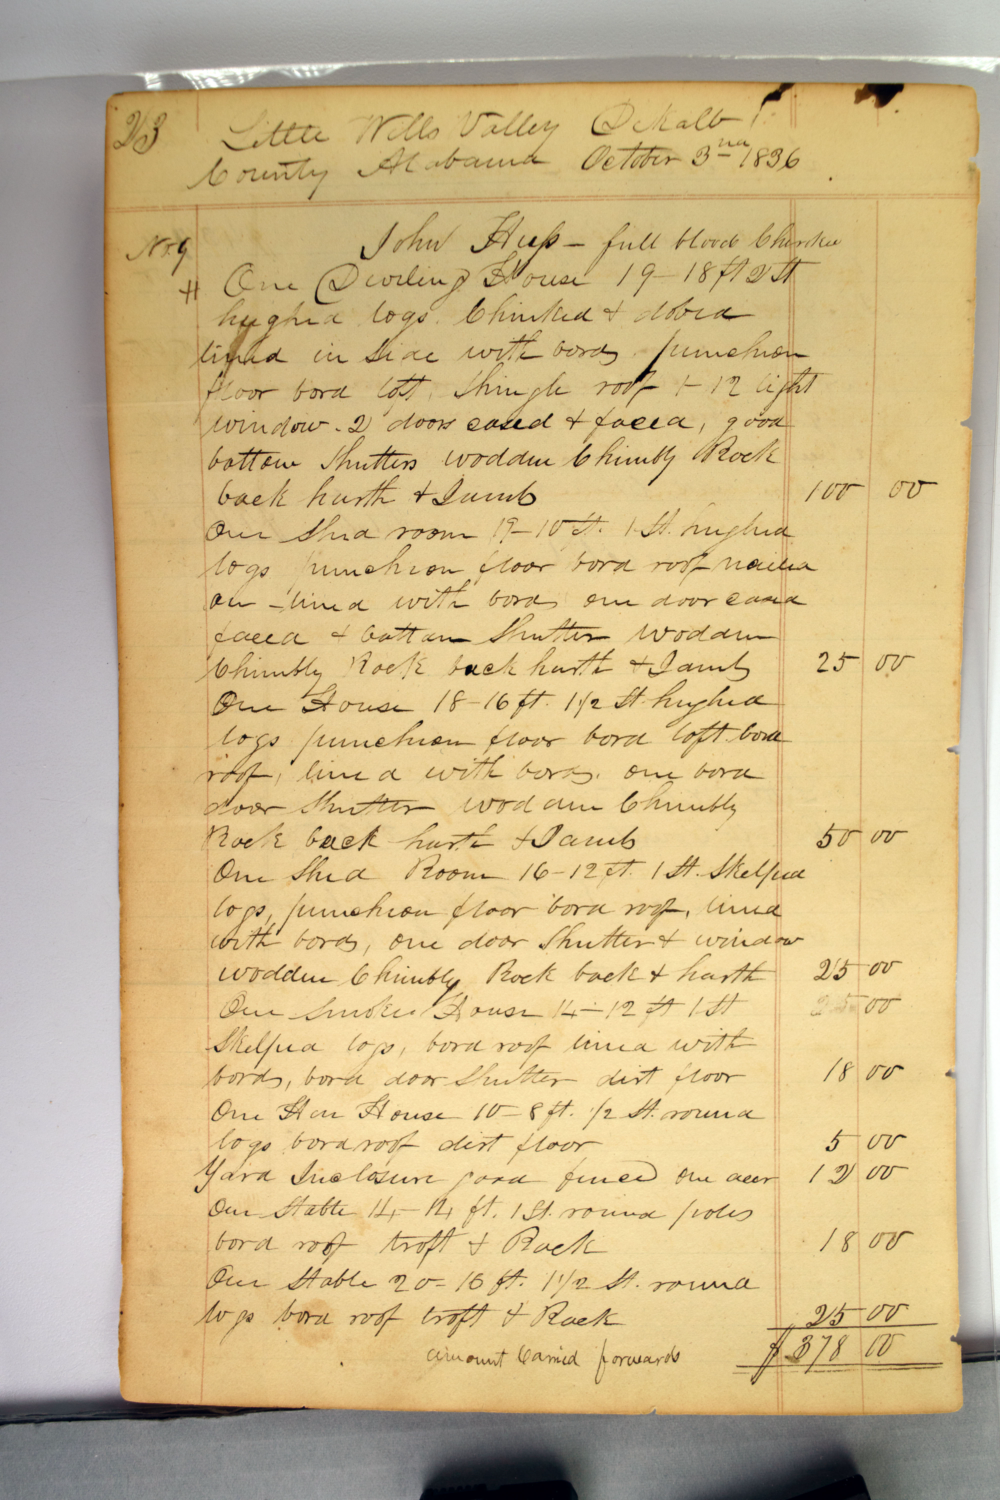 23 Little Wills Valley DeKalb
County Alabama October 3rd 1836
No 9
John Huss - full blood Cherokee
H One Dwelling House 19-18 ft 2 St
hughed logs Chinked & dobed
lined in Side with bords. puncheon
floor bord loft. Shingle roof 1-12 light
window. 2 doors cased & faced, good
battom Shutters wodden Chimbly Rock
back harth & Jamb 100 00
One Shed room 19-10 ft. 1 St. hughed
logs puncheon floor bord roof nailed
on - lined with bords one door cased
faced & battom Shutter wodden
Chimbly Rock back harth & Jamb 25 00
One House 18-16 ft. 1 1/2 St hughed
logs puncheon floor bord loft bord
roof, lined with bords. one bord
door Shutter wodden Chimbly
Rock back harth & Jamb 50 00
One Shed Room 16-12 ft. 1 St. Skelped
logs, puncheon floor bord roof, lined
with bords, one door Shutter & window
wodden Chimbly Rock back & harth 25 00
One Smoke House 14-12 ft 1 St 25 00
Skelped logs, bord roof lined with
bords, bord door Shutter dirt floor 18 00
One Hen House 10-8 ft. 1/2 St. round
logs bord roof dirt floor 5 00
Yard Inclosure good fence one acer 12 00
One Stable 14-14 ft. 1 St. round poles
bord roof troft & Rack 18 00
One Stable 20-16 ft. 1 1/2 St. round
logs bord roof troft & Rack 25 00
amount Carried forwards $ 378 00